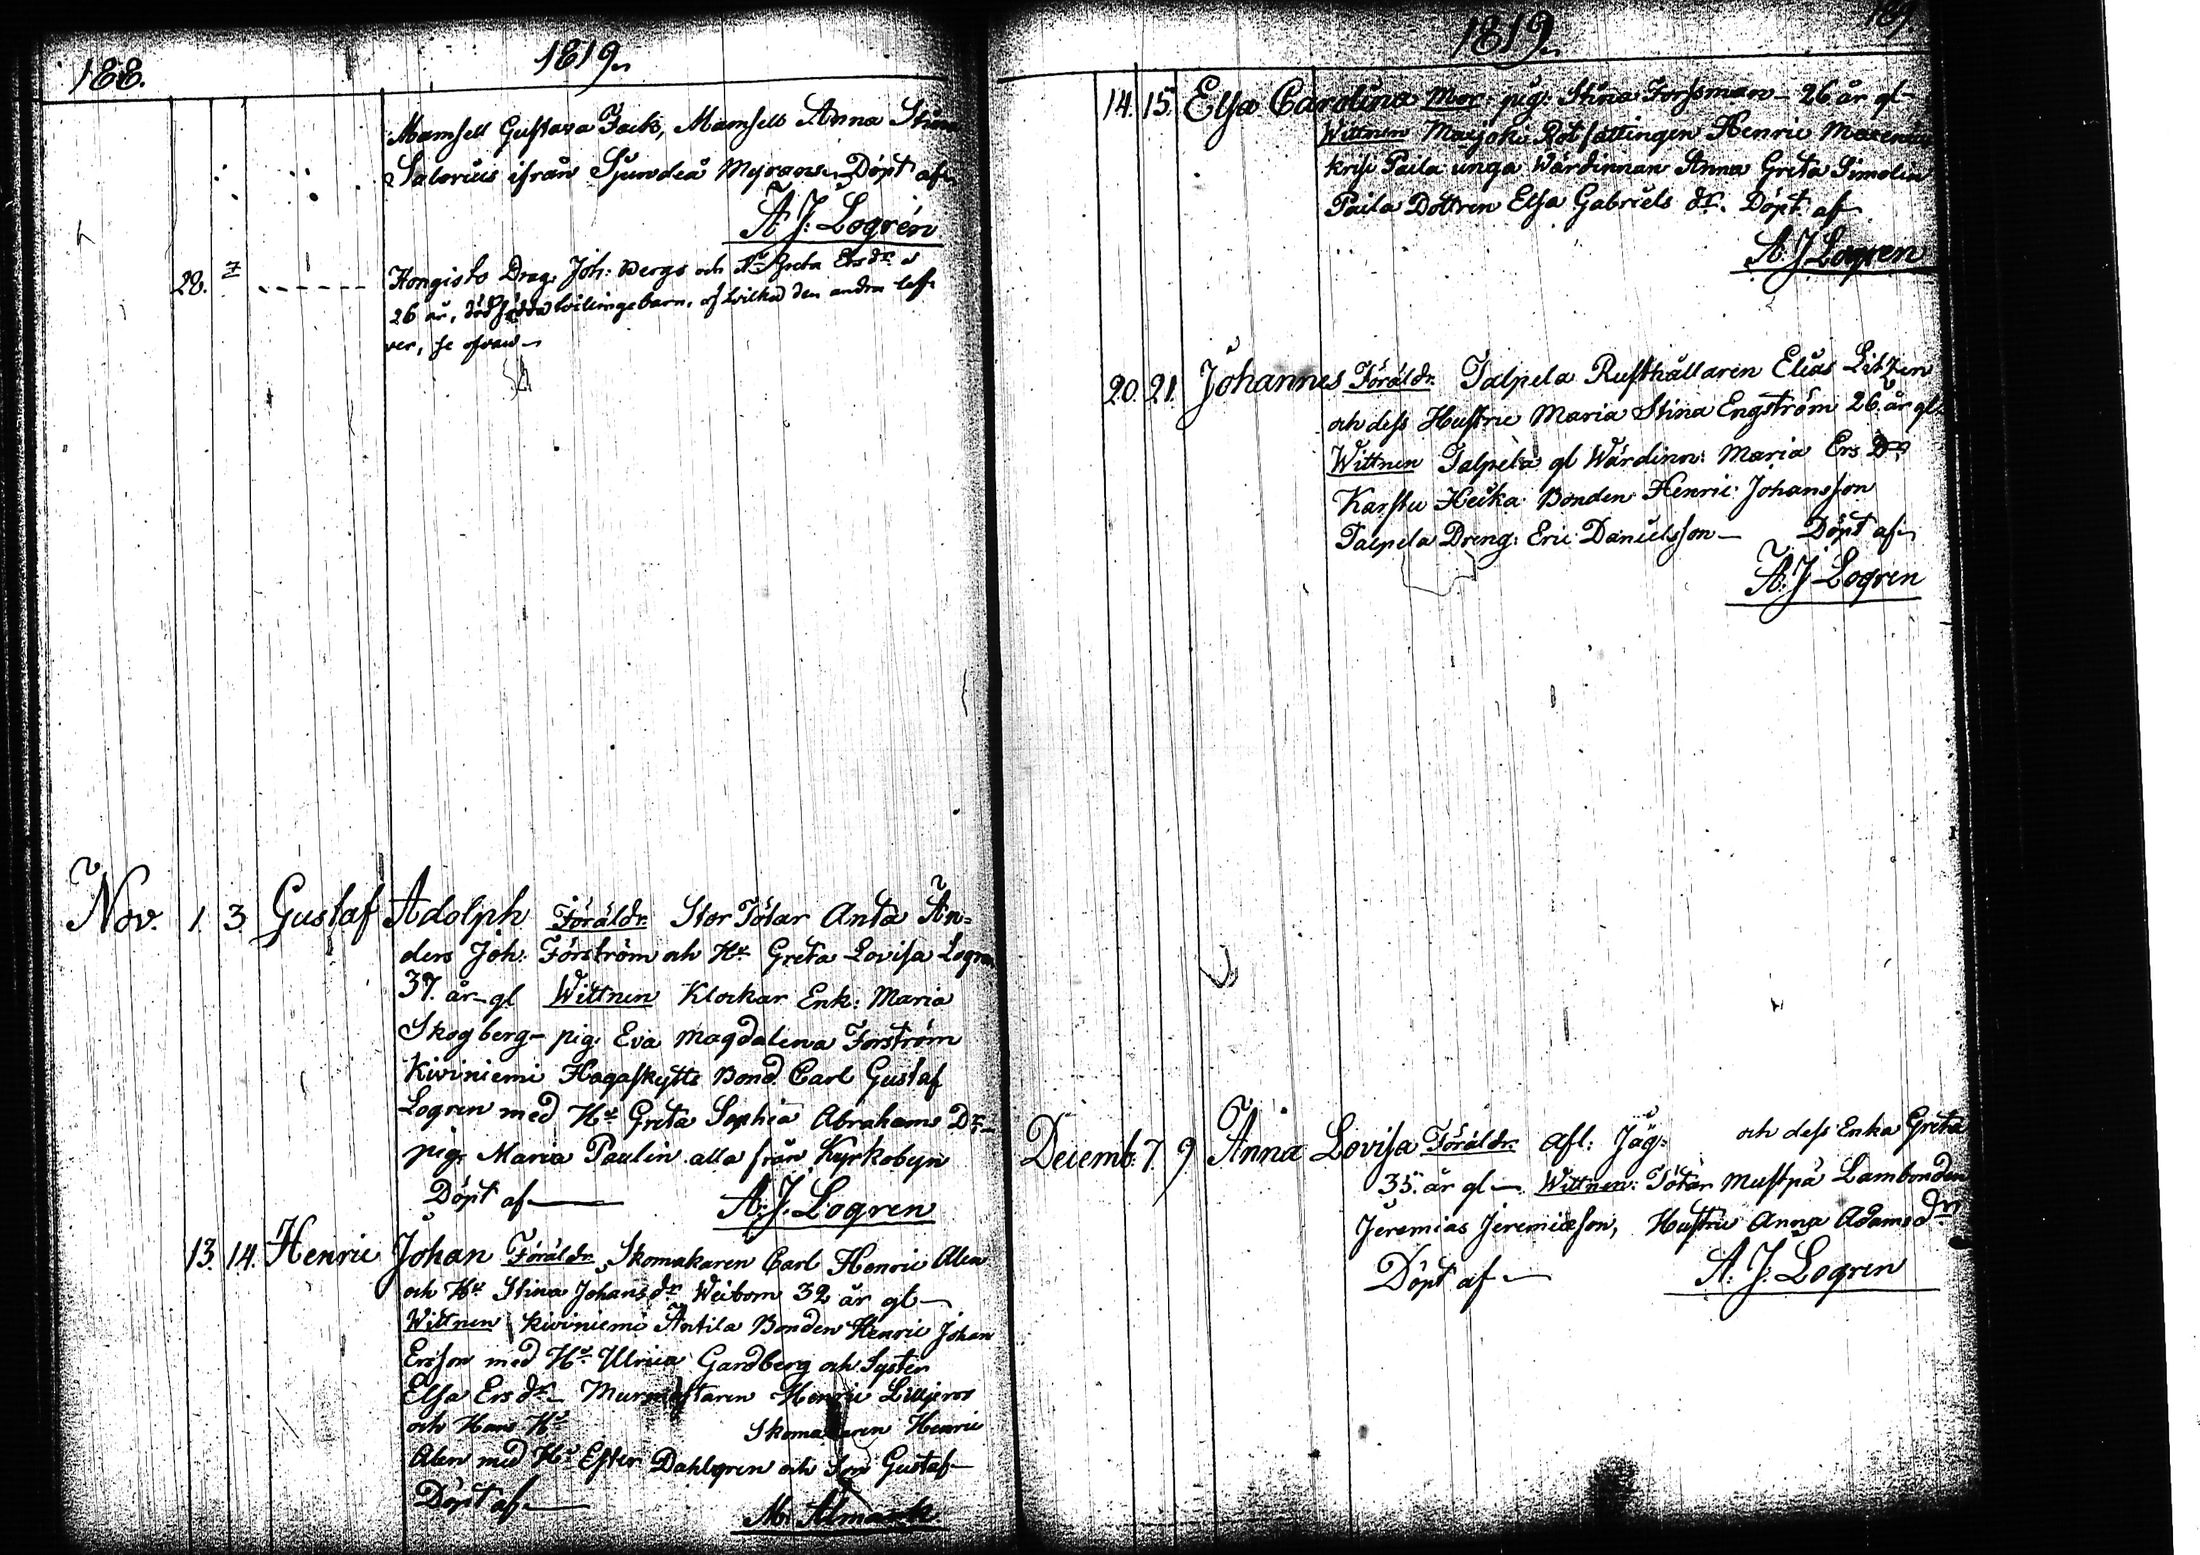 188.
1819.
Mamsell Gustava Jack, Mamsell Anna Stina
Salorius ifrån Sjundeå Myrans. Döpt af
A J: Logrén
28. Kongisto Drag: Joh: Bergs och Hu Greta Ers dr
26 år, dödfödda tvillingebarn, af hvilka den andra lef-
ver, se ofvan
Nov. 1. 3 Gustaf Adolph Föräldr. Stor Tötar Anta An=
ders Joh: Förström och Hu Greta Lovisa Logren
37. år gl Wittnen Klockar Enk: Maria
Skogberg - pig: Eva Magdalena Forström
Kiviniemi Hagaskytts Bond. Carl Gustaf
Logren med Hu Greta Sophia Abrahams Dr
pig: Maria Paulin alla från Kyrkobyn
Döpt af A: J: Logren
13. 14. Henric Johan Föräldr. Skomakaren Carl Henric Alen
och Hu Stina Johans dr Weibom 32 år gl
Wittnen Kiviniemi Antila Bonden Henric Johan
Ersson med Hu Ulrica Gardberg och Syster
Elsa Ers dr Murmästaren Henric Liljeros
och Hans Hu Skomakaren Henric
Alen med Hu Ester Dahlgren och Son Gustaf
Döpt af M: Almark
1819.
189.
14. 15. Elsa Carolina Mor: pig: Stina Forssman - 26 år gl
Wittnen Marjoki Rotfättingen Henric
Paila unga Wärdinnan Anna Greta Simolin
Paila Dottren Elsa Gabriels dr. Döpt af
A J Logren
20. 21. Johannes Föräldr. Talpela Rusthållaren Elias Litzen
och dess Hustru Maria Stina Engström 26 år gl.
Wittnen Talpela gl Wärdinn: Maria Ers Dr
Karstu Heika Bonden Henric Johansson
Talpela Dreng: Eric Danielsson Döpt af
A: J Logren
Decemb: 7. 9 Anna Lovisa Föräldr. afl: Jäg: och dess Enka Greta
35. år gl Wittnen: Tötar Mustpä Lambonden
Jeremias Jeremiæson, Hustru Anna Adams dr
Döpt af A. J: Logren